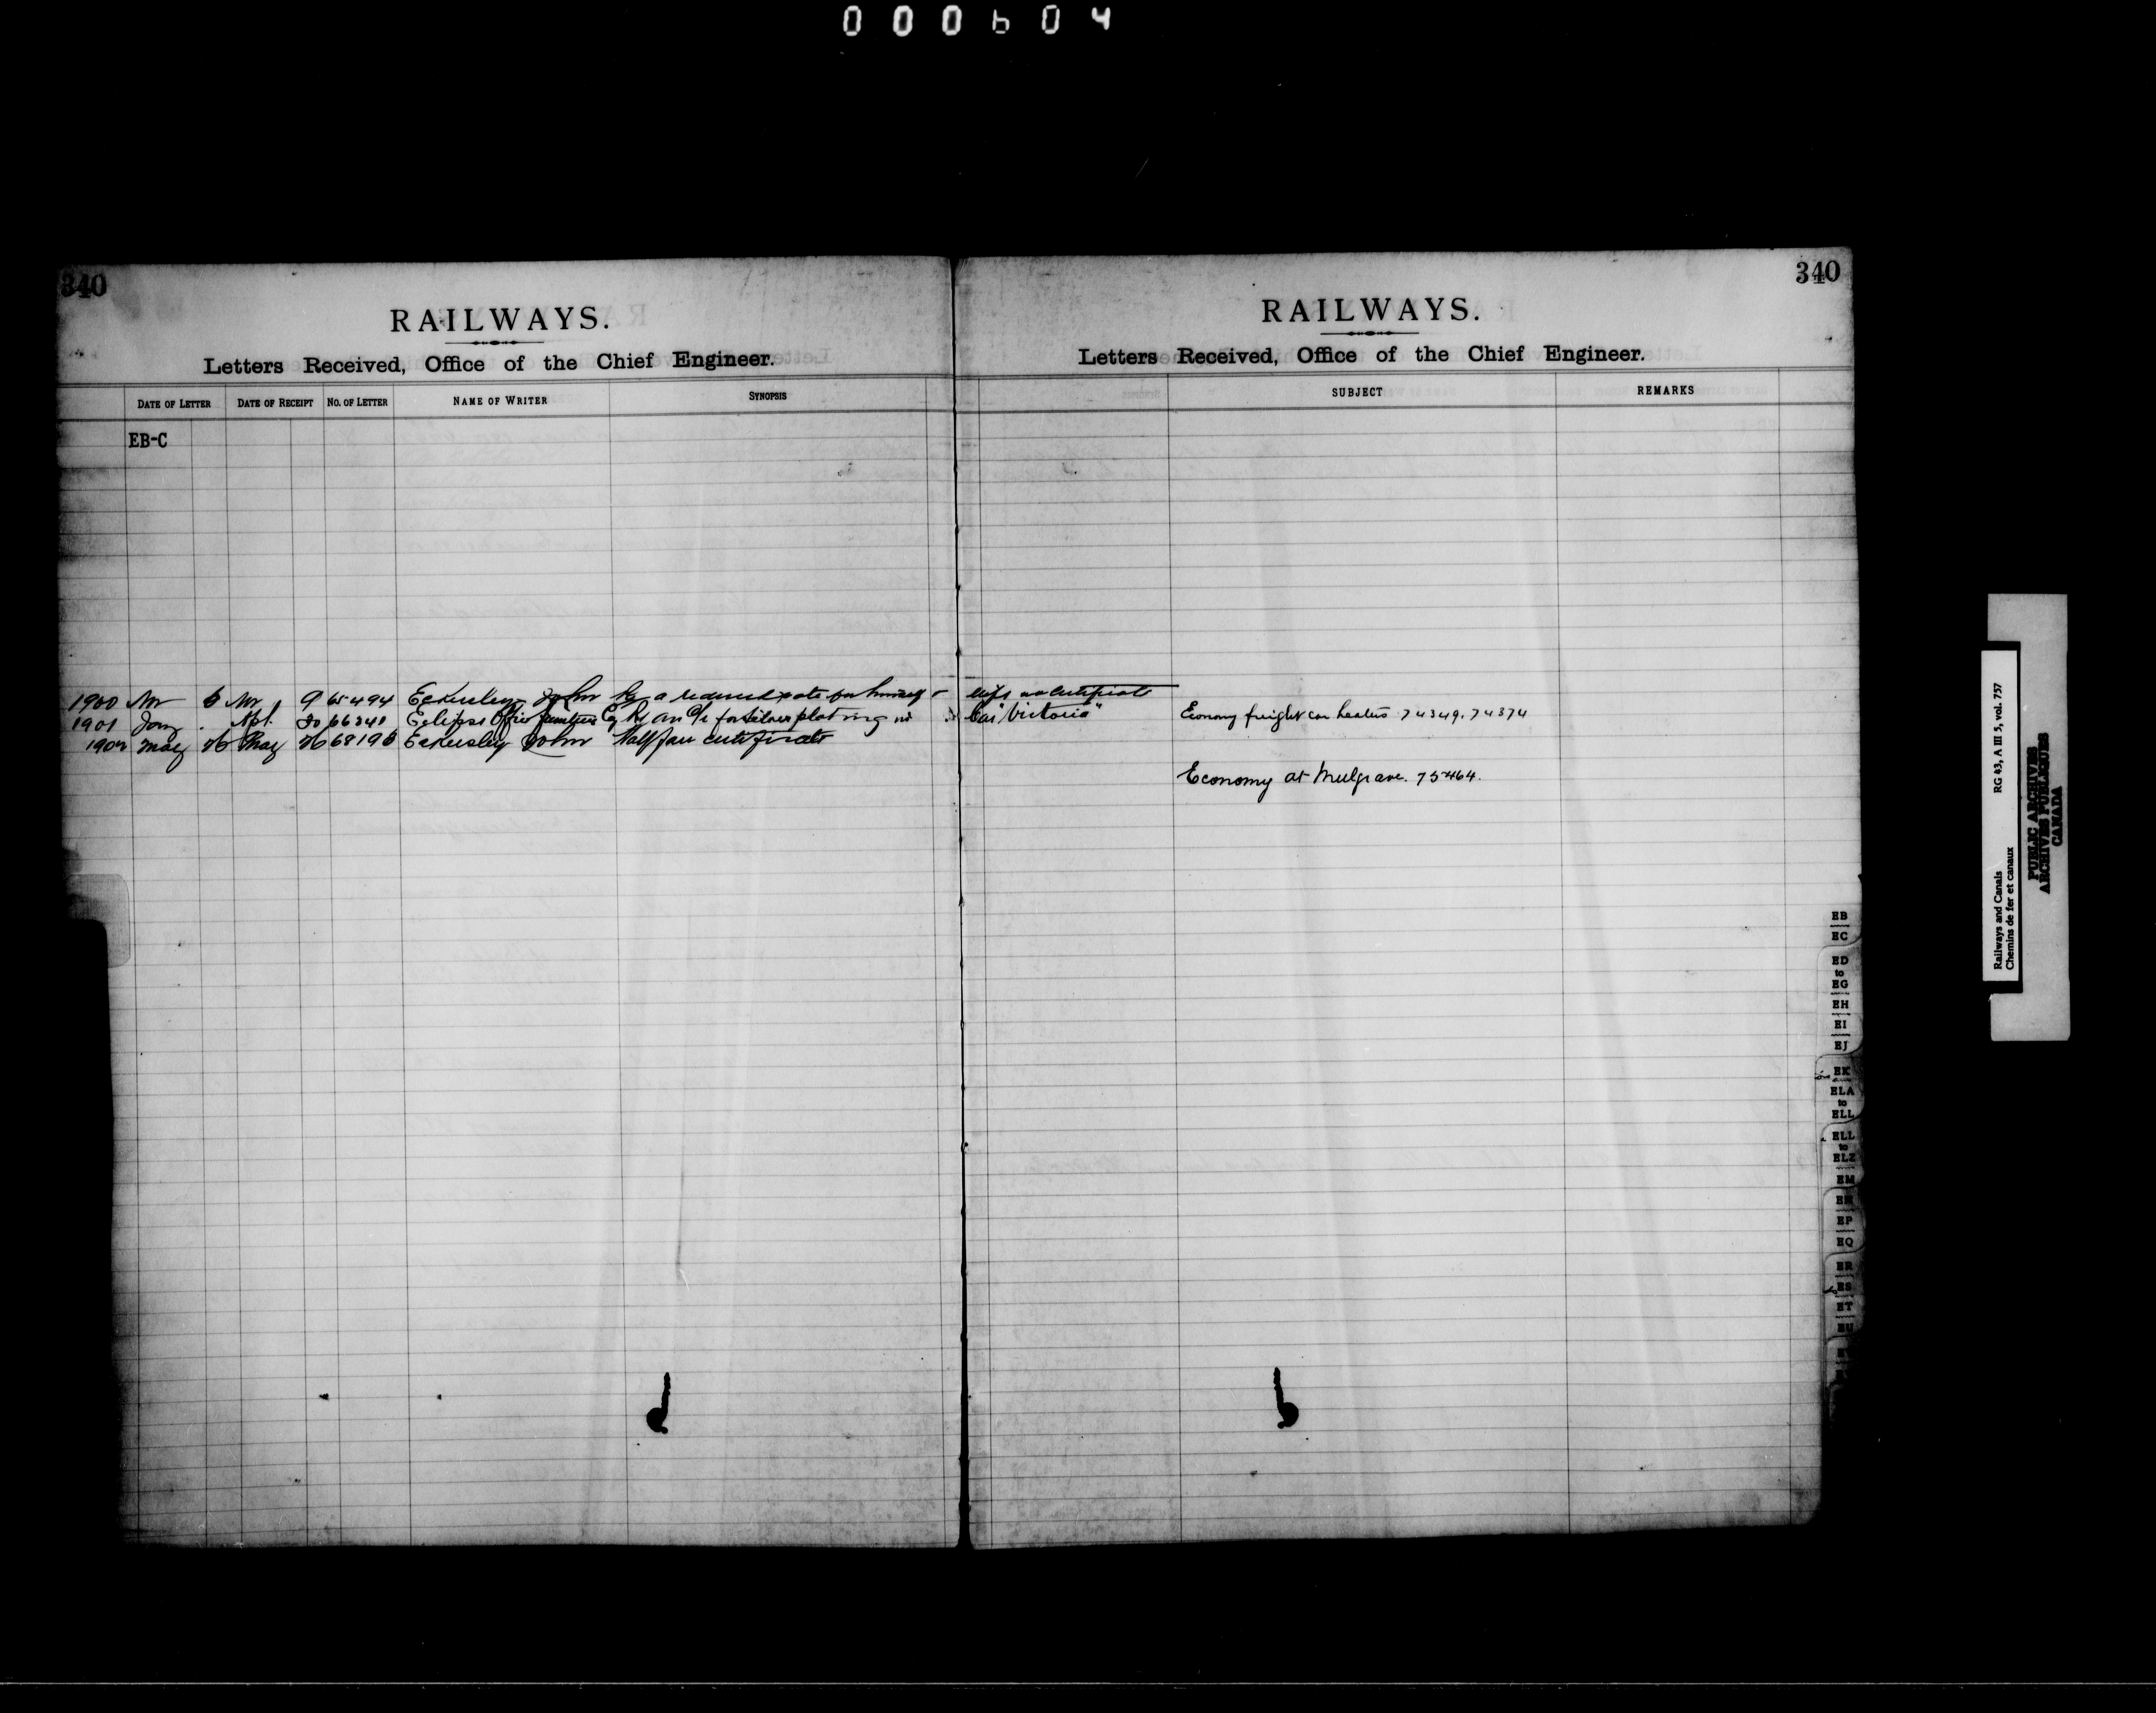 000604
340
RAILWAYS.
Letters Received, Office of the Chief Engineer.
DATE OF LETTER DATE OF RECEIPT NO. OF LETTER NAME OF WRITER SYNOPSIS
EB-C
1900 Nov 6 Nov 9 65494 Eckersley John Re a reduced rate for himself
1901 Jany Apl. 30 66341 Eclipse Office Furniture Co Re an a/c for silver plating
1902 May 26 May 26 68196 Eckersley John Half fare certificate
340
RAILWAYS.
Letters Received, Office of the Chief Engineer.
SUBJECT REMARKS
wife no certificate
Car "Victoria" Economy freight car heaters 74349. 74374
Economy at Mulgrave. 75464.
EB
EC
ED
to
EG
EH
EI
EJ
EK
ELA
to
ELL
ELL
to
ELZ
EM
EN
EP
EQ
ER
ES
ET
EU
Railways and Canals RG 43, A III 5, vol. 757
Chemins de fer et canaux
PUBLIC ARCHIVES
ARCHIVES PUBLIQUES
CANADA